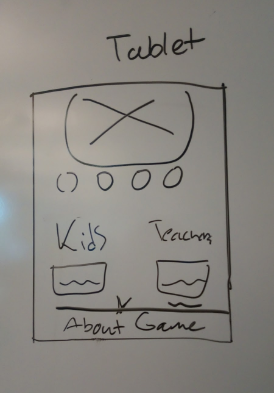 Tablet
Kids Teachers
About Game